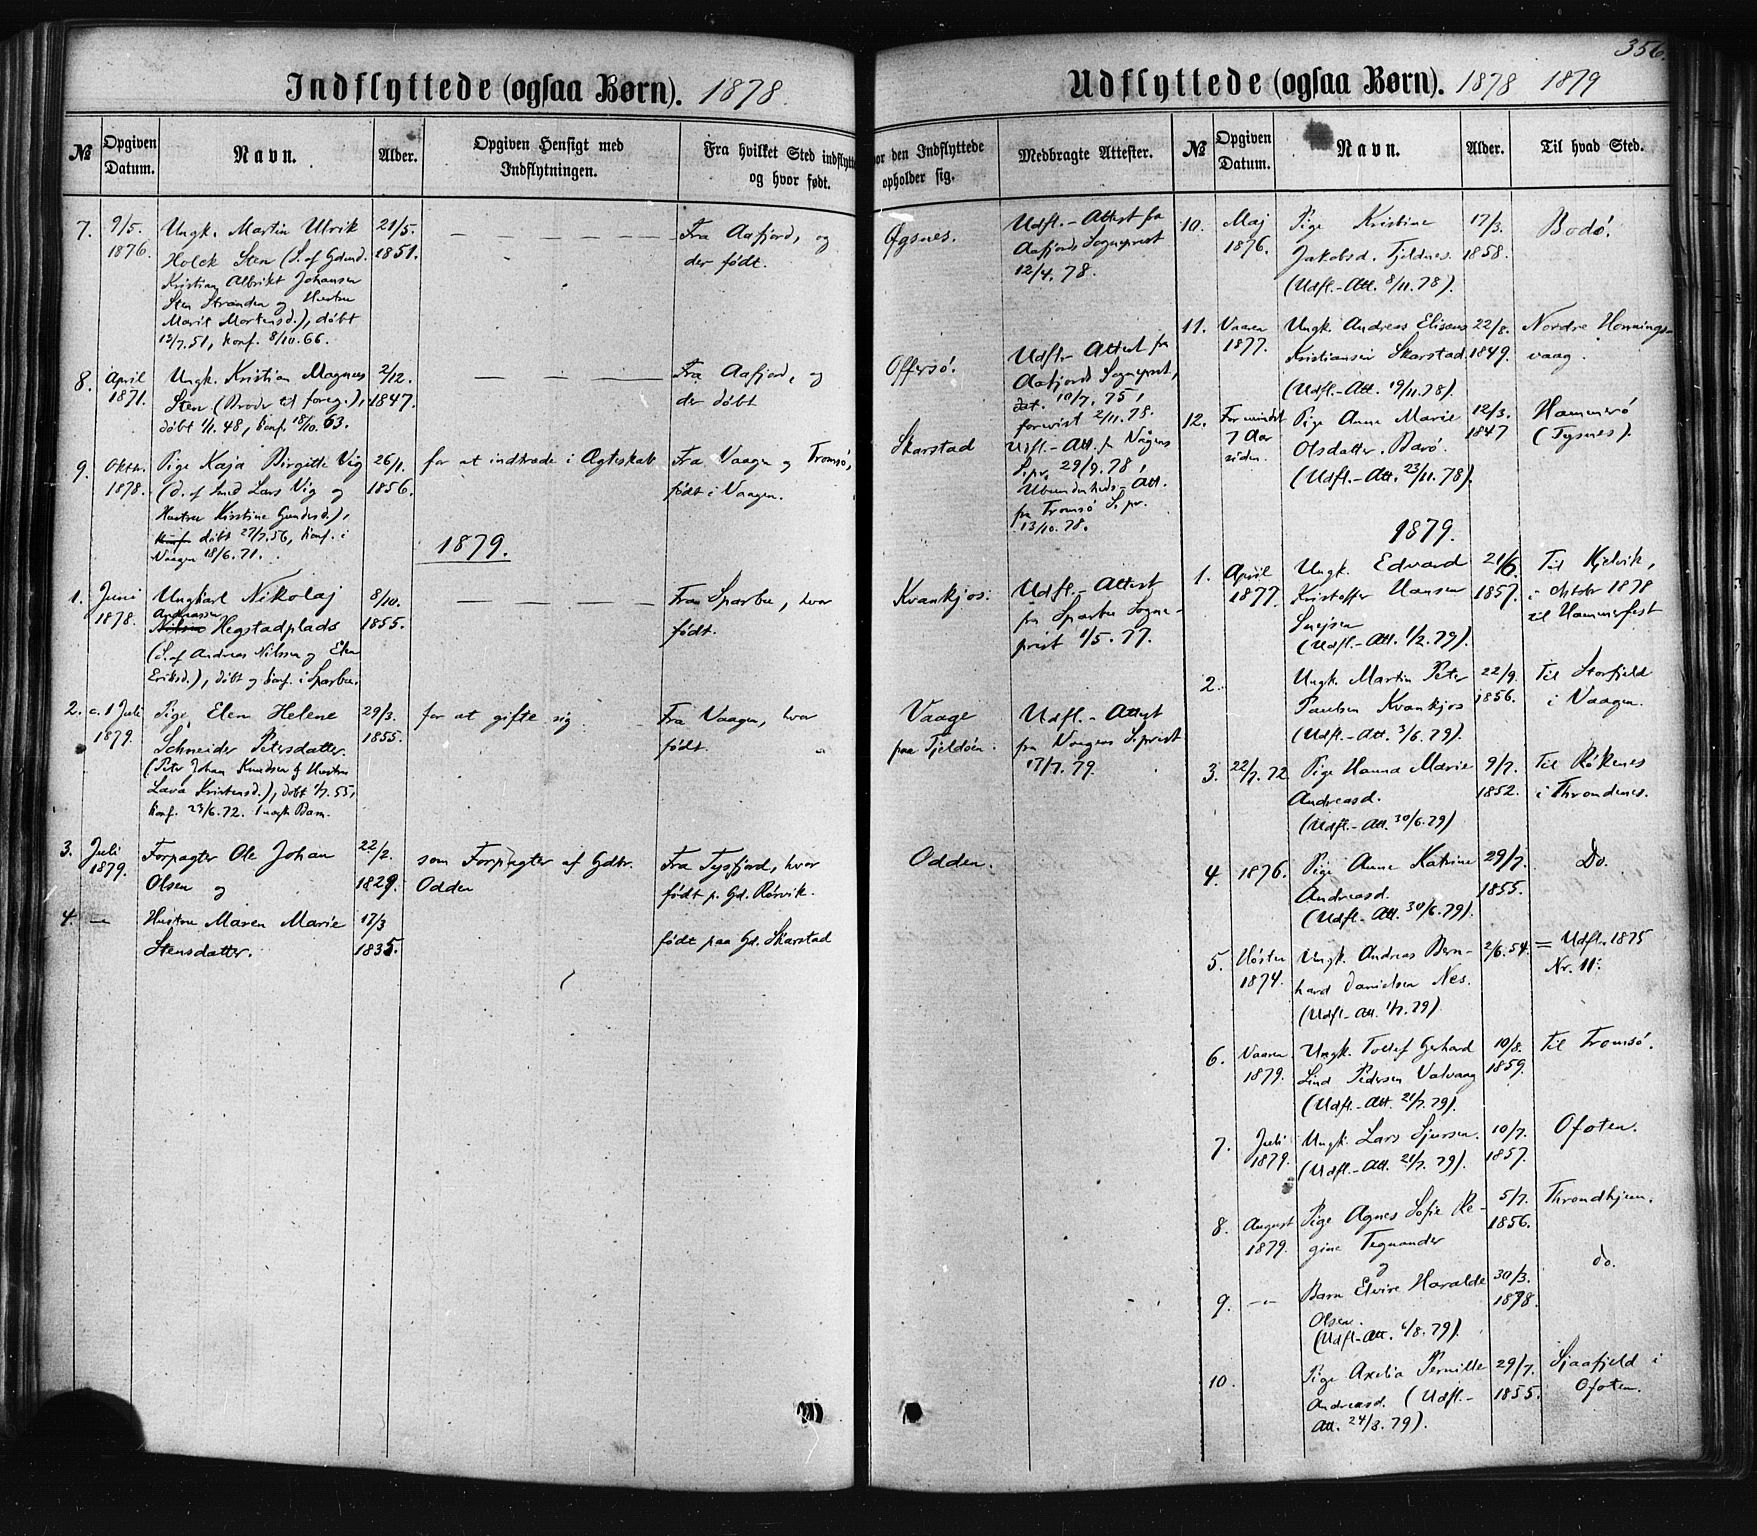 356.
Indflyttede (ogsaa Børn). 1878.
№
Opgiven Datum.
Navn.
Alder.
Opgiven Hensigt med Indflytningen.
Fra hvilket Sted indflytt
og hvor født.
or den Indflyttede
opholder sig.
Medbragte Attester.
7.
9/5.
1876.
Ungk. Martin Ulrik
Holck Sten (S. af Gdmd.
Kristian Albrikt Johansen
Sten Stranden og Hustru
Marit Mortensd.), døbt
13/7.51, konf. 8/10.66.
21/5.
1851.
Fra Aafjord, og
der født.
Øgsnes.
Udfl.-Attest fra
Aafjords Sogneprest
12/4. 78.
8.
April
1871.
Ungk. Kristian Magnus
Sten (Broder til foreg.),
døbt 1/1. 48, konf. 18/10. 63.
2/12.
1847.
Fra Aafjord, og
der døbt
Offersö.
Udfl.- Attest fra
Aafjords Sogneprest,
dat. 10/7. 75,
fornvist 2/11. 78.
9.
Oktbr.
1878.
Pige Kaja Birgitte Vig
(D. af Smed Lars Vig og
Hustru Kirstine Gundersd.),
konf. døbt 27/7.56, konf. i
Vaagen 18/6.71.
26/1.
1856.
for at indtræde i Ægteskab
Fra Vaagen og Tromsö,
født i Vaagen.
Skarstad
Udfl.-Att. fr. Vågens
S.pr. 29/9. 78,
Ubundenheds-Att.
fra Tromsö S.pr.
13/10. 78.
1879.
1.
Juni
1878.
Ungkarl Nikolaj
Andreassen
Nilsen Hegstadplads
(S. af Andreas Nilssen og Elen
Eriksd.), døbt og konf. i Sparbu.
8/10.
1855.
Fra Sparbu, hvor
født.
Kvankjos.
Udfl.-Attest
fra Sparbu Sogne-
prest 1/5. 77.
2.
c. 1 Juli
1879.
Pige Elen Helene
Schneider Petersdatter.
(Peter Johan Knudsen & Hustru
Lava Kristensd.), døbt 1/7.55,
konf. 23/6.72. 1 uægte Barn.
29/3.
1855.
for at gifte sig
Fra Vaagen, hvor
født.
Vaage
paa Tjeldöen.
Udfl.-Attest
fra Vaagens S.prest
17/7. 79.
3.
Juli
1879.
Forpagter Ole Johan
Olsen og
22/2.
1829.
som Forpagter af Gdbr.
Odden
Fra Tysfjord, hvor
født p. Gd. Rörvik.
Odden.
4.
Hustru Maren Marie
Stensdatter.
17/3
1835.
født paa Gd. Skarstad
Udflyttede (ogsaa Børn). 1878 1879
№
Opgiven Datum.
Navn.
Alder.
Til hvad Sted.
10.
Maj
1876.
Pige Kristine
Jakobsd. Tjeldnes.
(Udfl.-Att. 8/11. 78).
17/3.
1858.
Bodö.
11.
Vaaren
1877.
Ungk. Andreas Eliseus
Kristiansen Skarstad.
(Udfl.-Att. 19/11.78).
22/8.
1849.
Nordre Honnings-
vaag.
12.
For mindst
7 Aar
siden.
Pige Anne Marie
Olsdatter Barö.
(Udfl.-Att. 23/11. 78).
12/3.
1847
Hammerö
(Tysnes).
1879.
1.
April
1877.
Ungk. Edvard
Kristoffer Hansen
(Udfl.-Att. 1/2. 79).
21/6.
1857.
Til Kjelvik,
i Oktbr 1878
til Hammerfest
2.
Ungk. Martin Peter
Paulsen Kvankjos
(Udfl.-Att. 3/6. 79).
22/9.
1856.
Til Storfjeld
i Vaagen.
3.
22/7. 72
Pige Hanna Marie
Andreasd.
(Udfl.-Att. 30/6. 79)
9/7.
1852.
Til Rökenes
i Throndenes.
4.
1876.
Pige Anne Katrine
Andreasd.
(Udfl.-Att. 30/6.79).
29/7.
1855.
Do.
5.
Hösten
1874.
Ungk. Andreas Bern-
hard Danielsen Nes.
(Udfl.-Att. 1/7. 79).
2/6. 54.
= Udfl. 1875
Nr. 11.
6.
Vaaren
1879.
Ungk. Tollef Gerhard
Lind Pedersen Valvaag
(Udfl.-Att. 21/7. 79).
10/8.
1859.
Til Tromsö.
7.
Juli
1879.
Ungk. Lars Sjursen.
(Udfl.-Att. 21/7. 79).
10/7.
1857.
Ofoten.
8.
August
1879.
Pige Agnes Sofie Re-
gine Tegnander
og
5/7.
1856.
Throndhjem.
9.
Barn Elvire Haralde
Olsen.
(Udfl.-Att. 6/8. 79).
30/3.
1878.
do.
10.
Pige Axelia Pernille
Andreasd. (Udfl.-
Att. 24/8. 79).
29/7.
1855.
Sjaafjeld i
Ofoten.